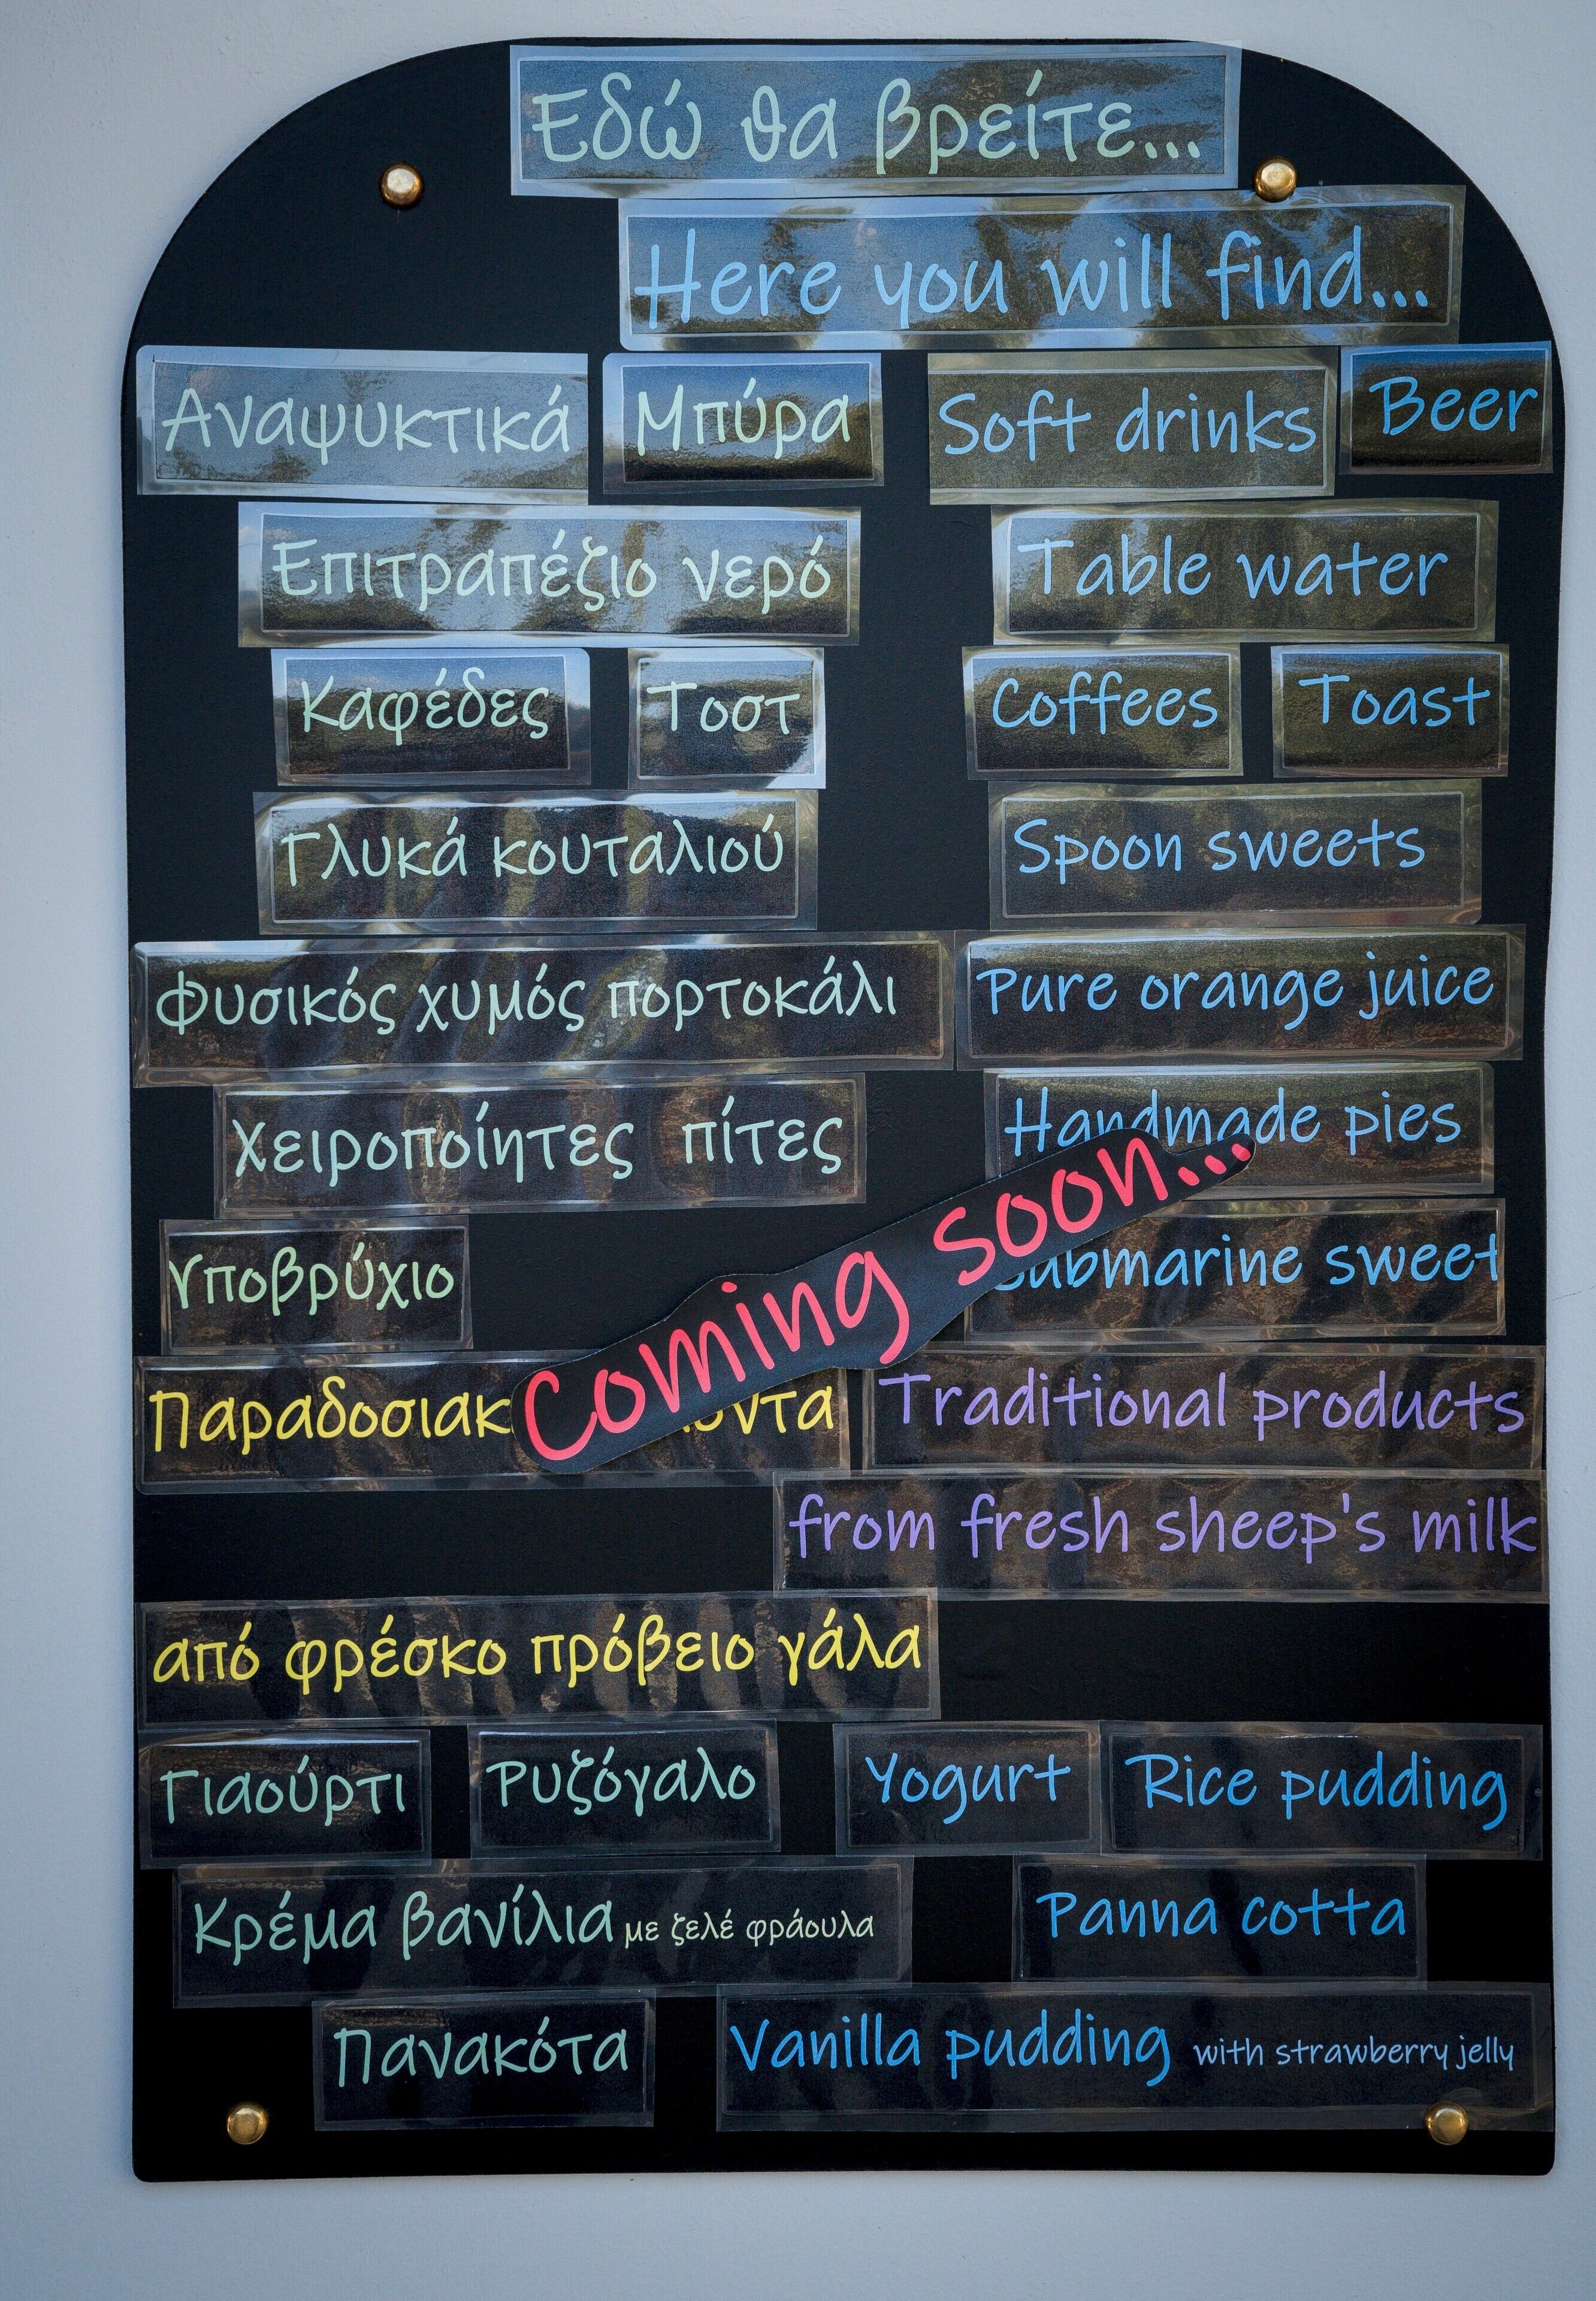 Εδώ θα βρείτε...
Here you will find...
Αναψυκτικά Μπύρα Soft drinks Beer
Επιτραπέζιο νερό Table water
Καφέδες Τοστ Coffees Toast
Γλυκά κουταλιού Spoon sweets
Φυσικός χυμός πορτοκάλι Pure orange juice
Χειροποίητες πίτες Handmade pies
Coming soon...
Υποβρύχιο Submarine sweet
Traditional products
from fresh sheep's milk
από φρέσκο πρόβειο γάλα
Γιαούρτι Ρυζόγαλο Yogurt Rice pudding
Κρέμα βανίλια με ζελέ φράουλα Panna cotta
Πανακότα Vanilla pudding with strawberry jelly